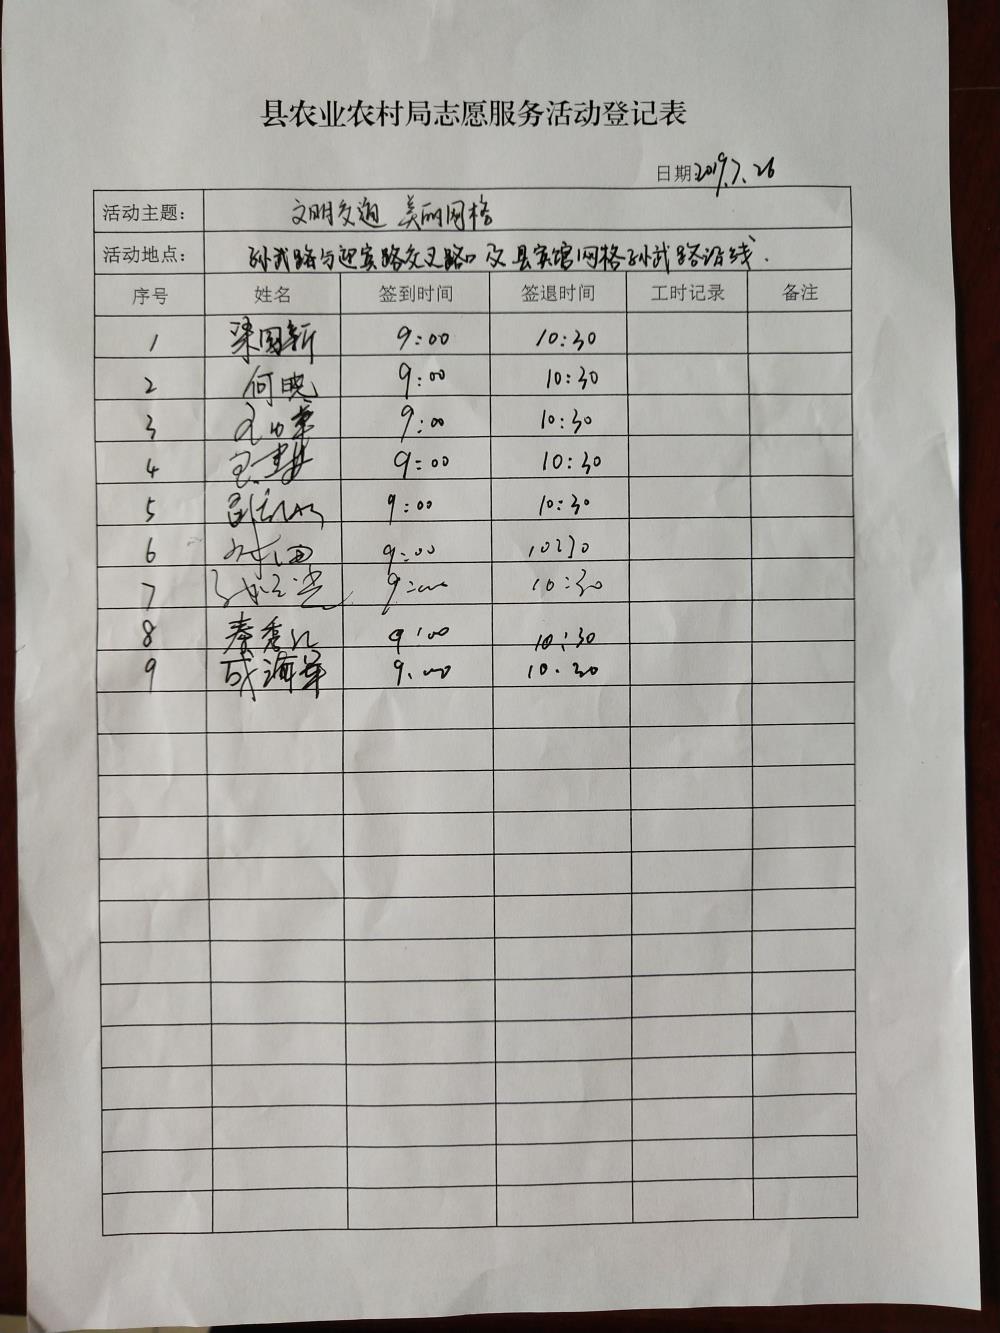 县农业农村局志愿服务活动登记表
日期2019.7.26
活动主题： 文明交通 美丽网格
活动地点： 孙武路与迎宾路交叉路口及县宾馆网格孙武路沿线.
序号 姓名 签到时间 签退时间 工时记录 备注
1 梁国新 9:00 10:30
2 何晓 9:00 10:30
3 9:00 10:30
4 9:00 10:30
5 9:00 10:30
6 9:00 10:30
7 9:00 10:30
8 秦秀 9:00 10:30
9 成海军 9:00 10:30